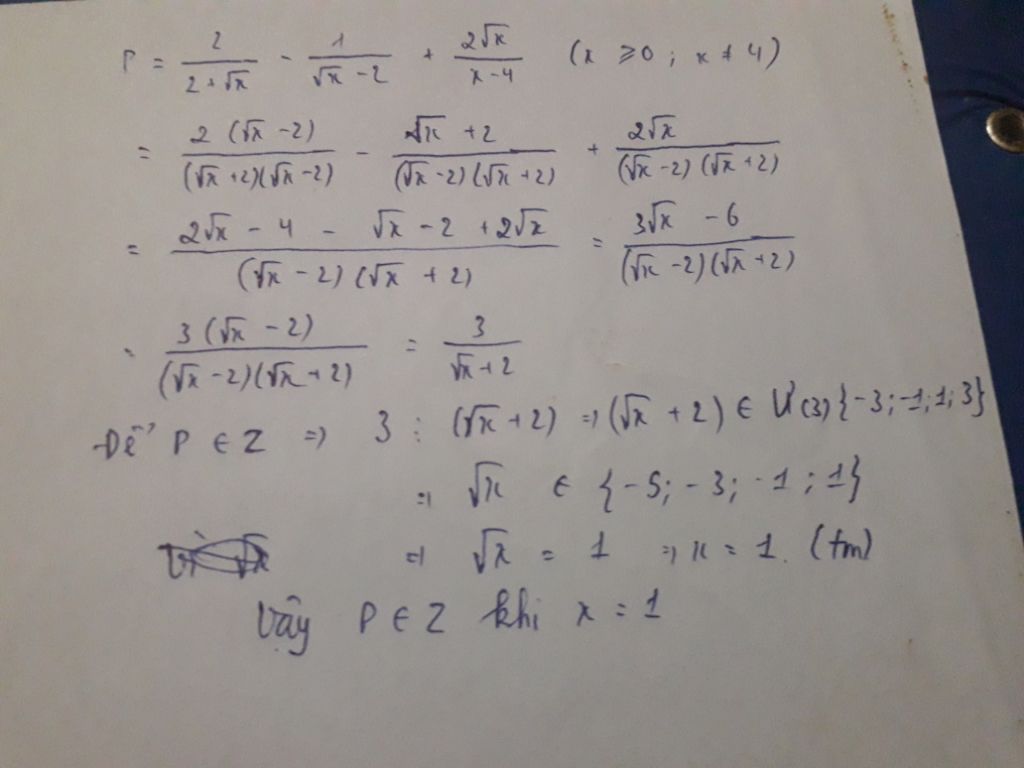 P = 2/(2+√x) - 1/(√x - 2) + 2√x/(x-4) (x ≥ 0 ; x ≠ 4)
= 2(√x - 2)/((√x + 2)(√x - 2)) - (√x + 2)/((√x - 2)(√x + 2)) + 2√x/((√x - 2)(√x + 2))
= (2√x - 4 - √x - 2 + 2√x)/((√x - 2)(√x + 2)) = (3√x - 6)/((√x - 2)(√x + 2))
= 3(√x - 2)/((√x - 2)(√x + 2)) = 3/(√x + 2)
Để P ∈ Z => 3 ⋮ (√x + 2) => (√x + 2) ∈ Ư(3) {-3; -1; 1; 3}
=> √x ∈ {-5; -3; -1; 1}
=> √x = 1 => x = 1. (tm)
Vậy P ∈ Z khi x = 1